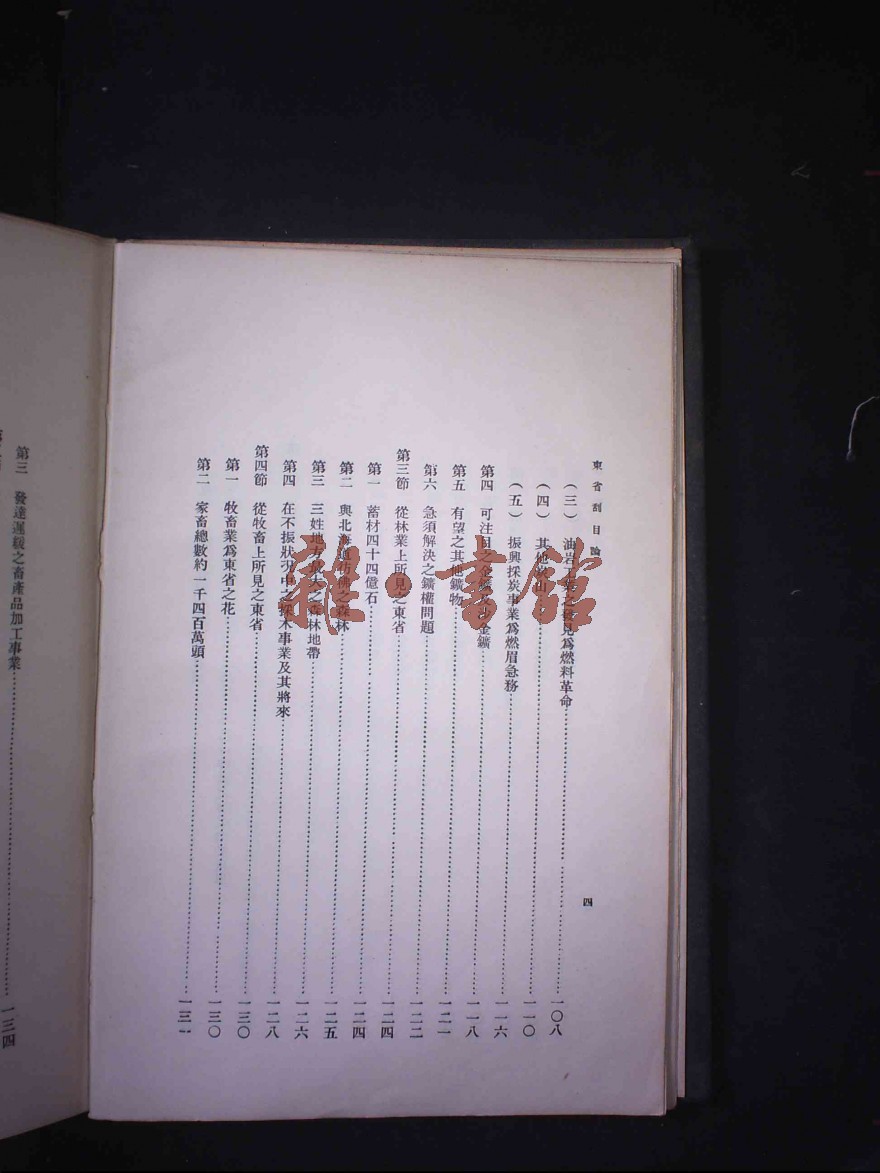 東省刮目論
四
（三）　油岩工業之發見爲燃料革命………一〇八
（四）　其他炭山………一一〇
（五）　振興採炭事業爲燃眉急務………一一六
第四　可注目之金鑛及沙金鑛………一一八
第五　有望之其他鑛物………一二一
第六　急須解決之鑛權問題………一二二
第三節　從林業上所見之東省………一二四
第一　蓄材四十四億石………一二四
第二　與北海道彷彿之森林………一二五
第三　三姓地方 大之森林地帶………一二六
第四　在不振狀況中之採木事業及其將來………一二八
第四節　從牧畜上所見之東省………一三〇
第一　牧畜業爲東省之花………一三〇
第二　家畜總數約一千四百萬頭………一三一
第三　發達遲緩之畜產品加工事業………一三四
雜·書館